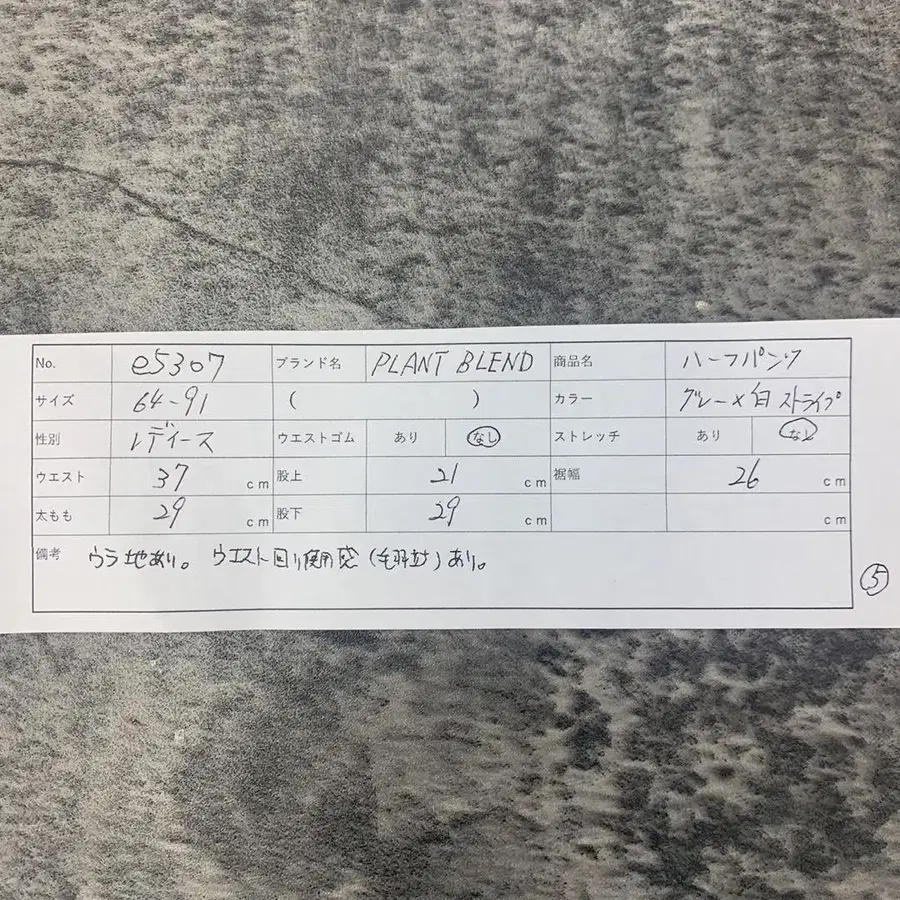 No. e5307 ブランド名 PLANT BLEND 商品名 ハーフパンツ
サイズ 64-91 ( ) カラー グレー×白 ストライプ
性別 レディース ウエストゴム あり なし ストレッチ あり なし
ウエスト 37 cm 股上 21 cm 裾幅 26 cm
太もも 29 cm 股下 29 cm cm
備考 ウラ地あり。 ウエスト回り使用感(毛羽立)あり。
⑤